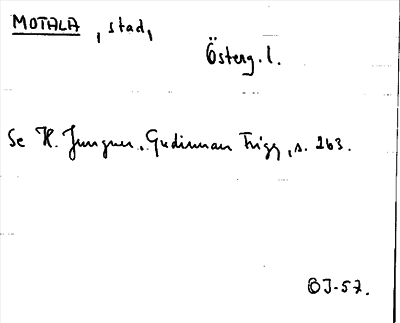 MOTALA, stad,
Österg. l.
Se H. Jungner, Gudinnan Frigg, s. 263.
OJ-57.